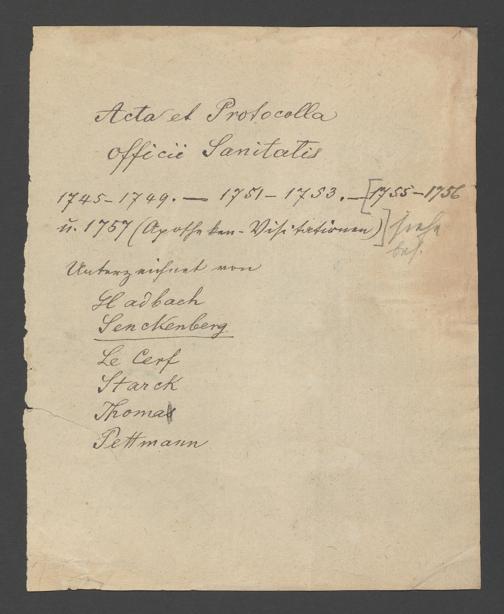 Acta et Protocolla
Officii Sanitatis
1745-1749. — 1751-1753. — [1755-1756
u. 1757 (Apotheken-Visitationen)] siehe
bes.
Unterzeichnet von
Gladbach
Senckenberg
Le Cerf
Starck
Thomas
Pettmann